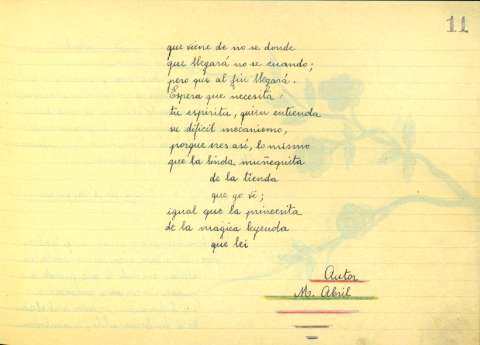 11
que viene de no se donde
que llegará no se cuando;
pero que al fin llegará.
Espera que necesita
tu espiritu, quien entienda
su dificil mecanismo,
porque eres asi, lo mismo
que la linda muñequita
de la tienda
que yo vi;
igual que la princesita
de la magica leyenda
que lei
Autor
M. Abril